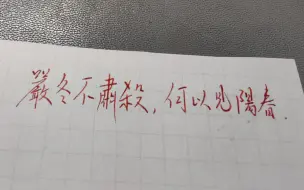 嚴冬不肅殺，何以見陽春.